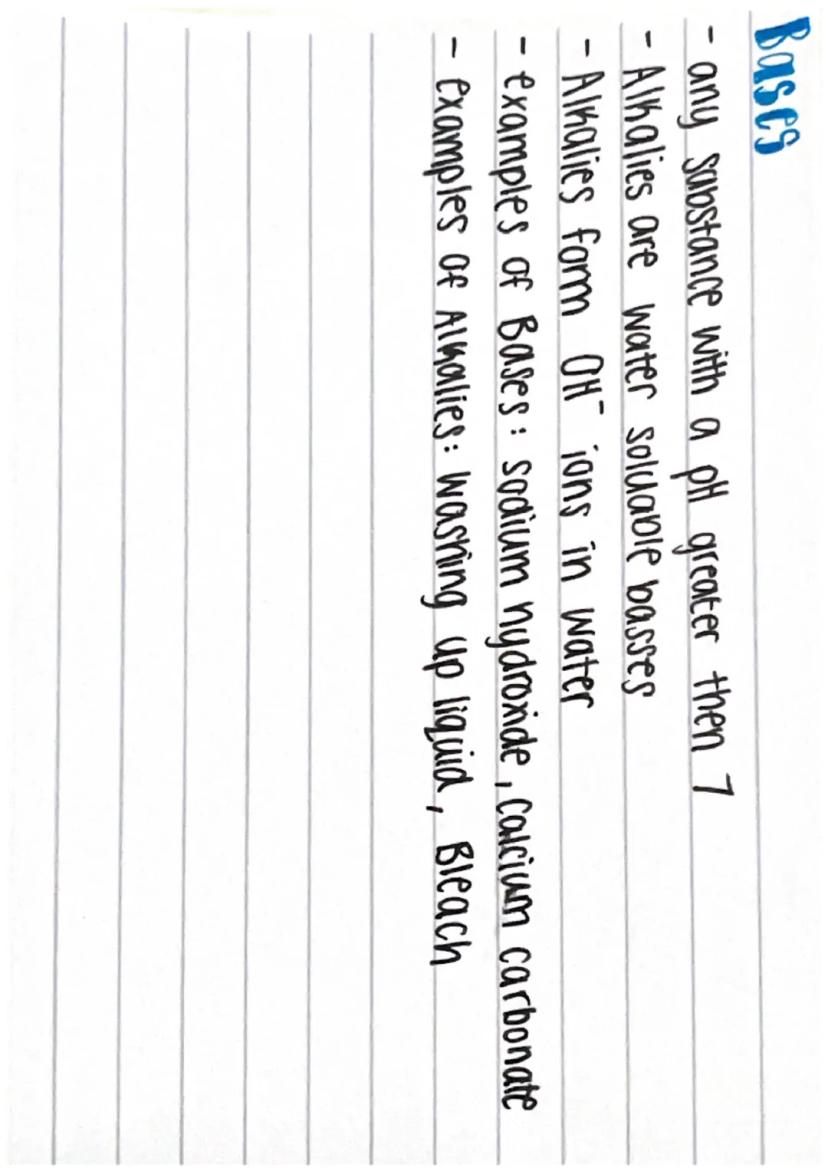 Bases
- any substance with a pH greater then 7
- Alkalies are water soluable basses
- Alkalies form OH⁻ ions in water
- examples of Bases: sodium hydroxide, calcium carbonate
- examples of Alkalies: washing up liquid, Bleach